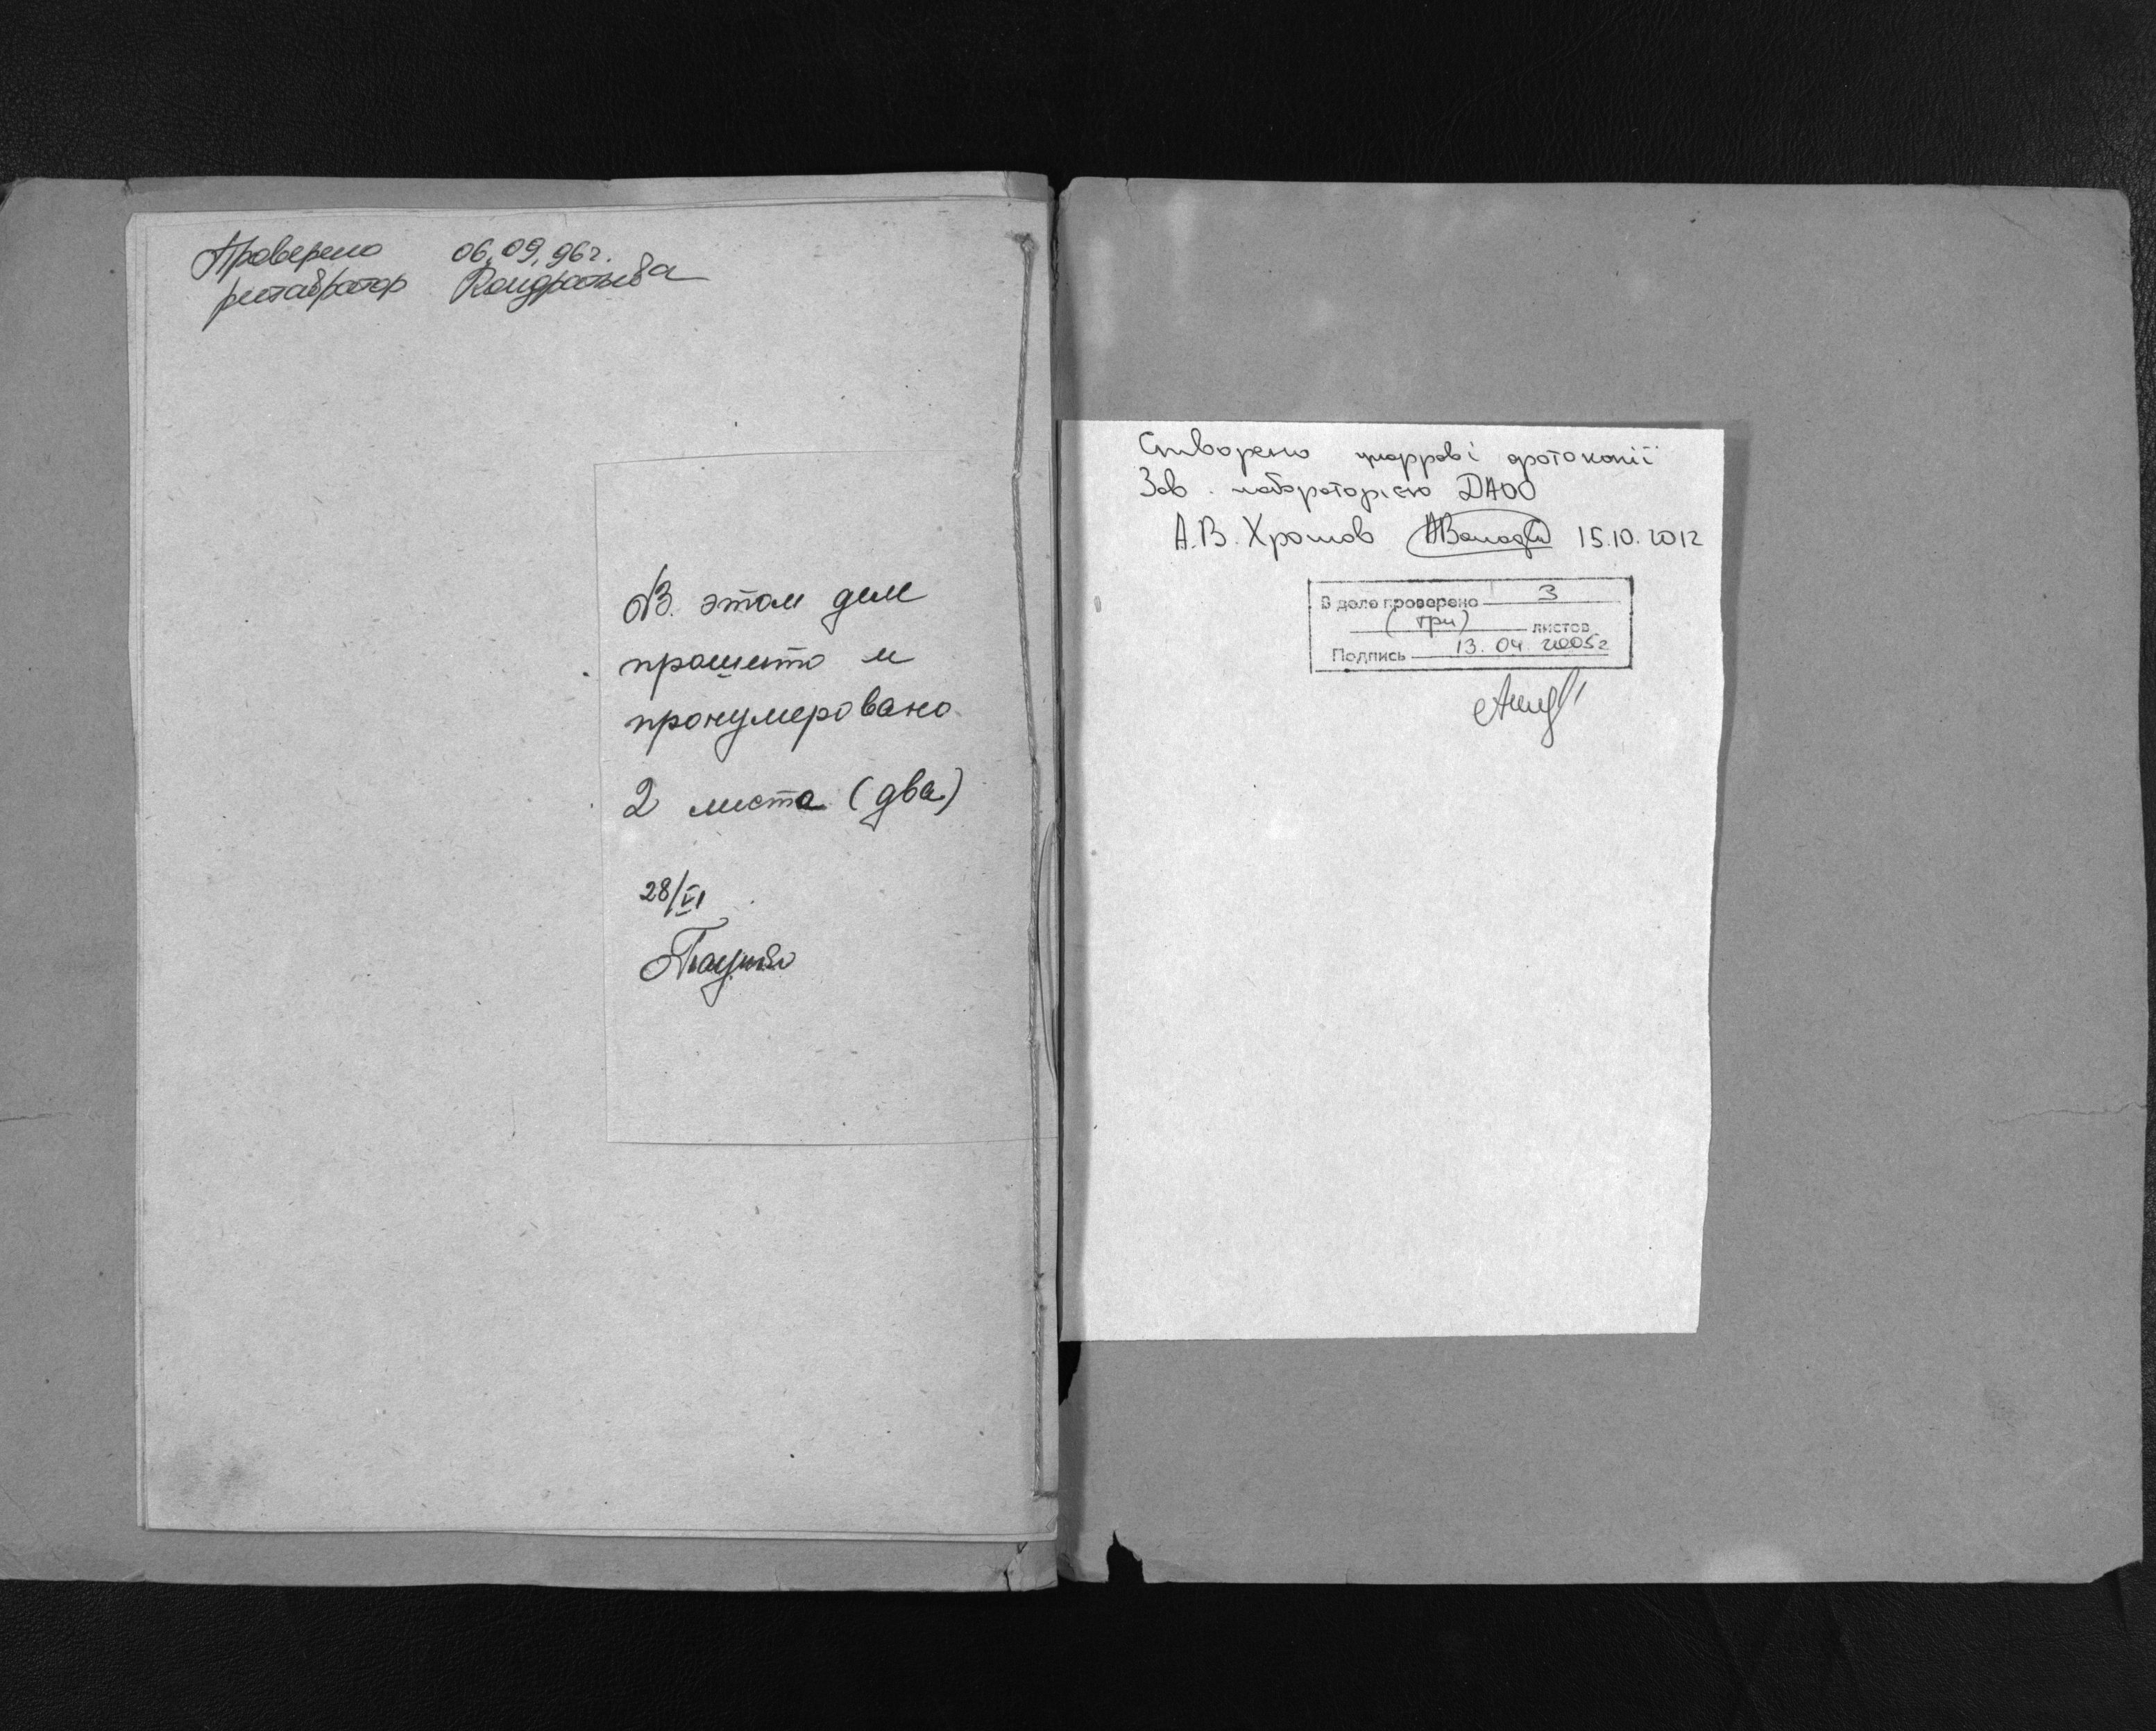 Проверено 06.09.96г.
реставратор Кондратьева
В этом деле
прошито и
пронумеровано
2 листа (два)
28/VI
Створено цифрові фотокопії
Зав. лабораторією ДАОО
А.В. Хромов 15.10.2012
В деле проверено 3
(три) листов
Подпись 13.04 2005г